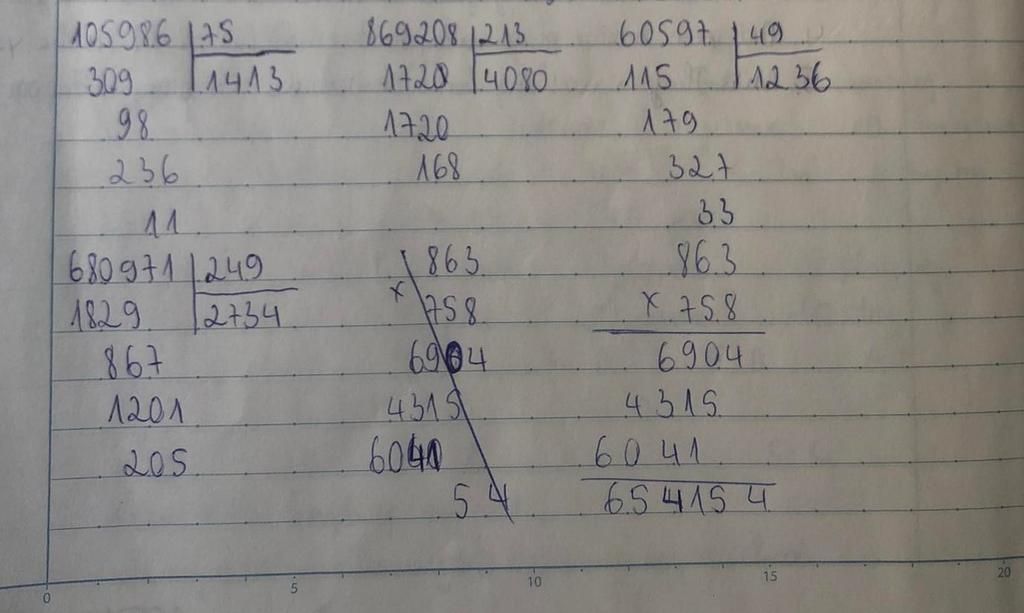 105986 75 869208 213 60597 49
309 1413 1720 4080 115 1236
98 1720 179
236 168 327
11 33
680971 249 863 863
1829 2734 x 758 x 758
867 6904 6904
1201 4315 4315
205 6041 6041
54 654154
0 5 10 15 20